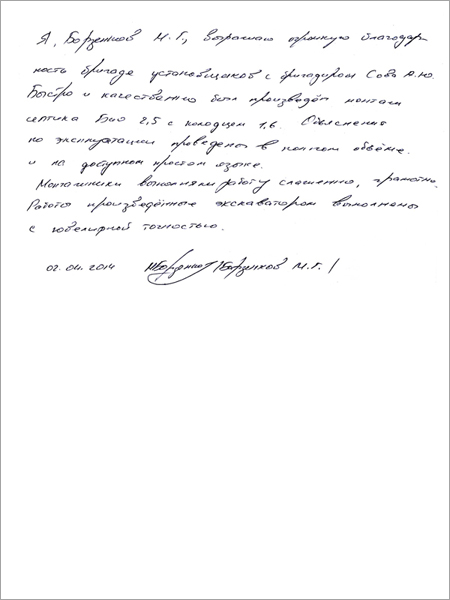 Я, Борзенков М.Г., выражаю огромную благодар-
ность бригаде установщиков с бригадиром Сова А.Ю.
Быстро и качественно был произведён монтаж
септика Био 2,5 с колодцем 1,6. Объяснения
по эксплуатации проведены в полном объёме.
и на доступном простом языке.
Монтажники выполняли работу слаженно, грамотно.
Работы произведённые экскаватором выполнены
с ювелирной точностью.
02.04.2014 /Борзенков М.Г./